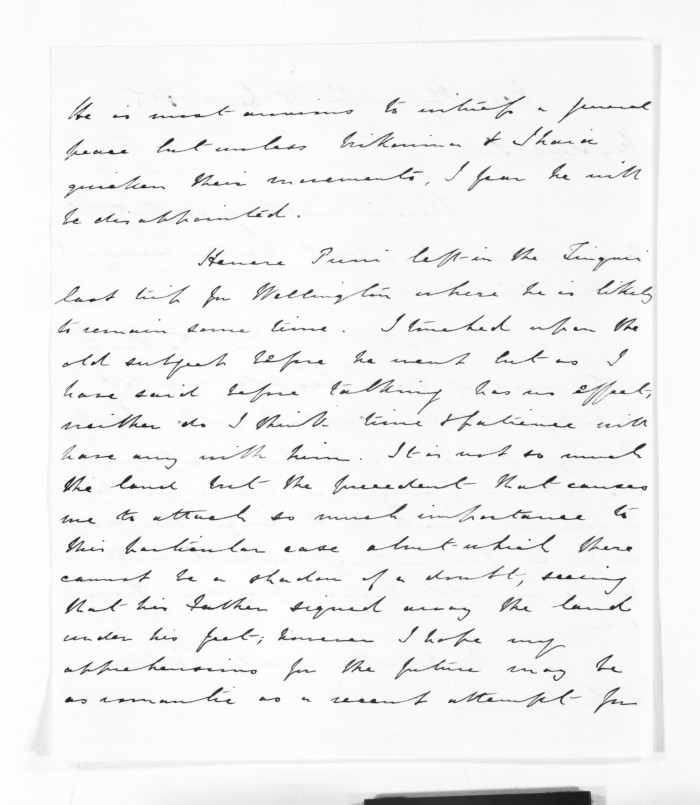 He is most anxious to witness a general
peace but unless & Ihaia
quicken their movements, I fear he will
be disappointed.
Henere Puni left in the Zingari
last trip for Wellington where he is likely
to remain some time. I touched upon the
old subject before he went but as I
have said before talking has no effect,
neither do I think time & patience will
have any with him. It is not so much
the land but the precedent that causes
me to attach so much importance to
this particular case about which there
cannot be a shadow of a doubt, seeing
that his Father signed away the land
under his feet; however I hope my
apprehensions for the future may be
as romantic as a recent attempt for